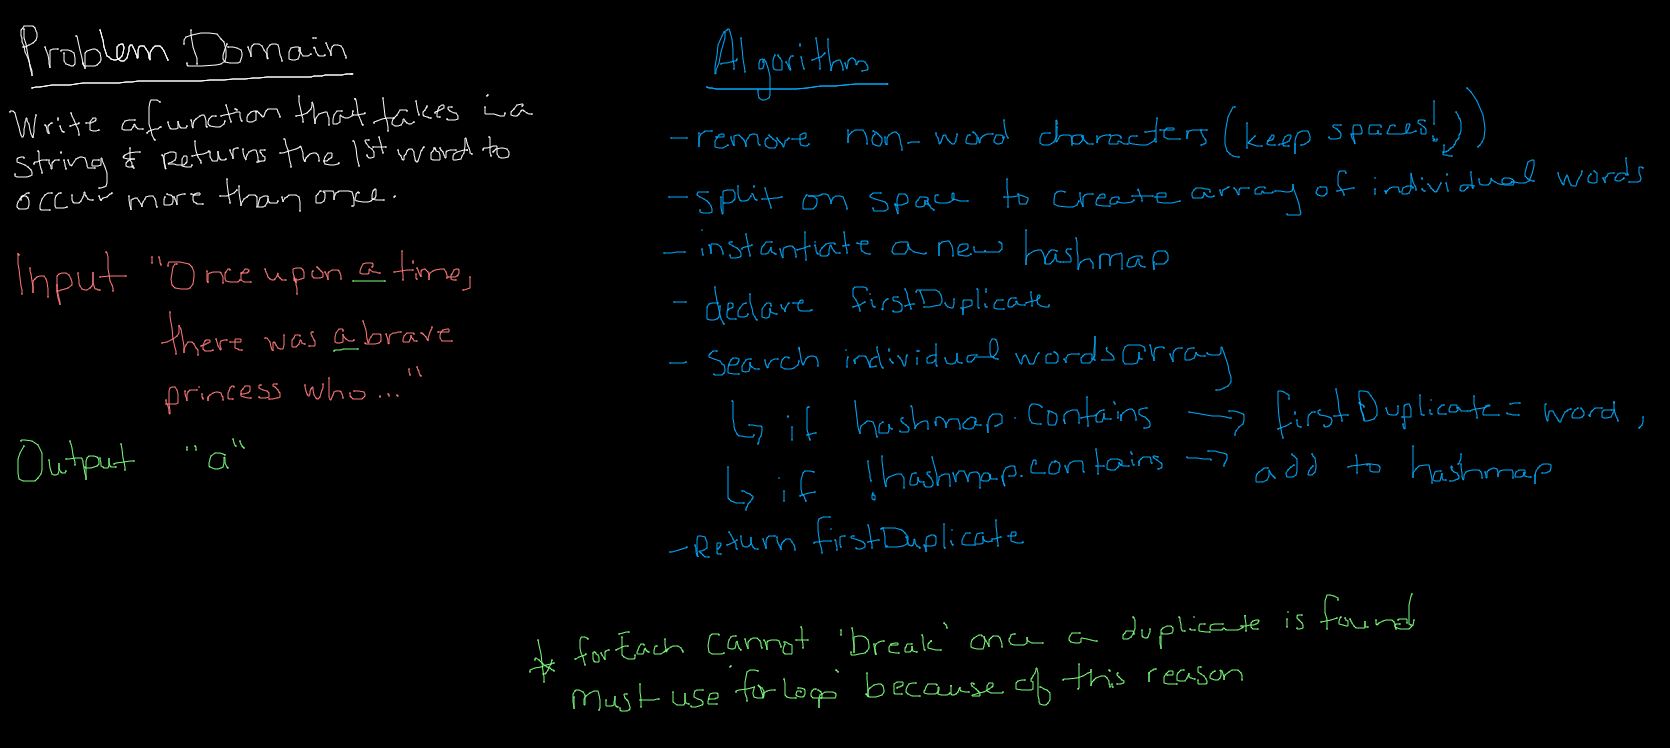 Problem Domain
Write a function that takes in a
string & returns the 1st word to
occur more than once.
Input "Once upon a time,
there was a brave
princess who..."
Output "a"
Algorithm
- remove non-word characters (keep spaces!,))
- split on space to create array of individual words
- instantiate a new hashmap
- declare firstDuplicate
- Search individual words array
↳ if hashmap.contains → firstDuplicate = word,
↳ if !hashmap.contains → add to hashmap
- Return firstDuplicate
* forEach cannot 'break' once a duplicate is found
Must use 'for loop' because of this reason